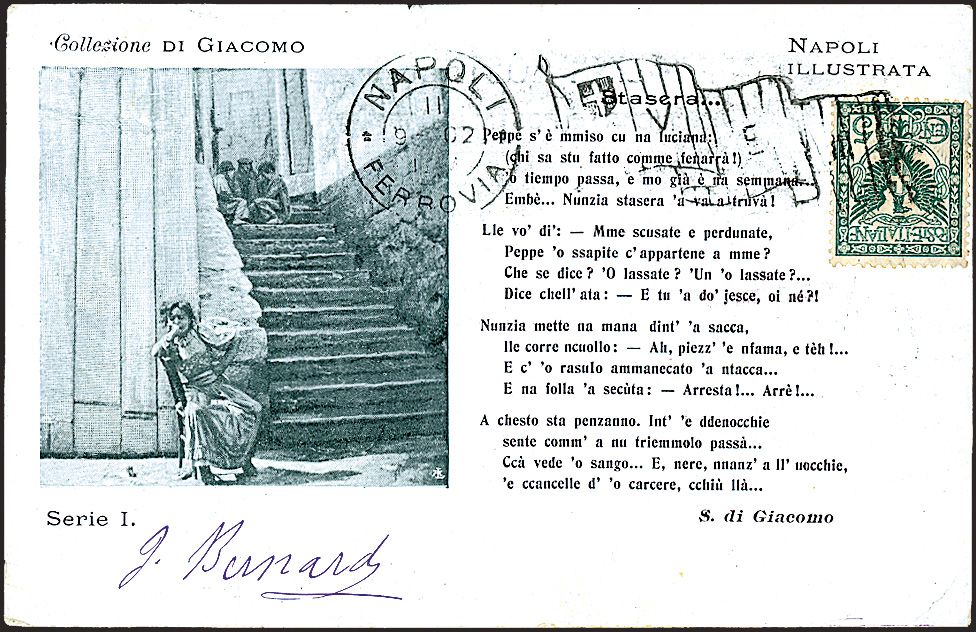 Collezione DI GIACOMO
NAPOLI
ILLUSTRATA
NAPOLI
11
9 02
FERROVIA
Stasera...
Peppe s' è mmiso cu na luciana:
(chi sa stu fatto comme fenarrà!)
'o tiempo passa, e mo già è na semmana...
Embè... Nunzia stasera 'a va a truvà!
Lle vo' di': — Mme scusate e perdunate,
Peppe 'o ssapite c' appartene a mme?
Che se dice? 'O lassate? 'Un 'o lassate?...
Dice chell' ata: — E tu 'a do' jesce, oi né?!
Nunzia mette na mana dint' 'a sacca,
lle corre ncuollo: — Ah, piezz' 'e nfama, e tèh!...
E c' 'o rasulo ammanecato a ntacca...
E na folla 'a secùta: — Arresta!... Arrè!...
A chesto sta penzanno. Int' 'e ddenocchie
sente comm' a nu triemmolo passà...
Ccà vede 'o sango... E, nere, nnanz' a ll' uocchie,
'e ccancelle d' 'o carcere, cchiù llà...
S. di Giacomo
POSTE ITALIANE
Serie I.
J. Bernard